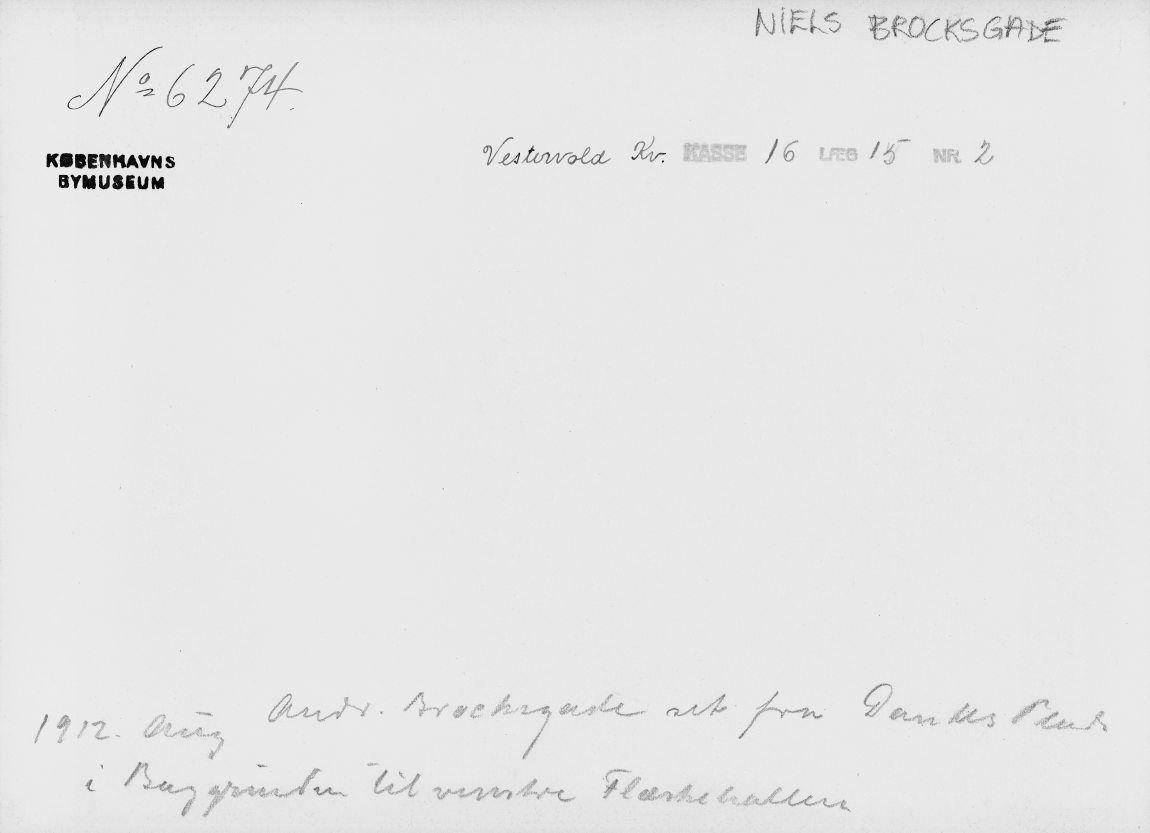 NIELS BROCKSGADE
No 6274.
KØBENHAVNS
BYMUSEUM
Vestervold Kv. KASSE 16 LÆG 15 NR. 2
1912. Aug Andr. Brocksgade set fra Dantes Plads
i Baggrunden til venstre Flæskehallen